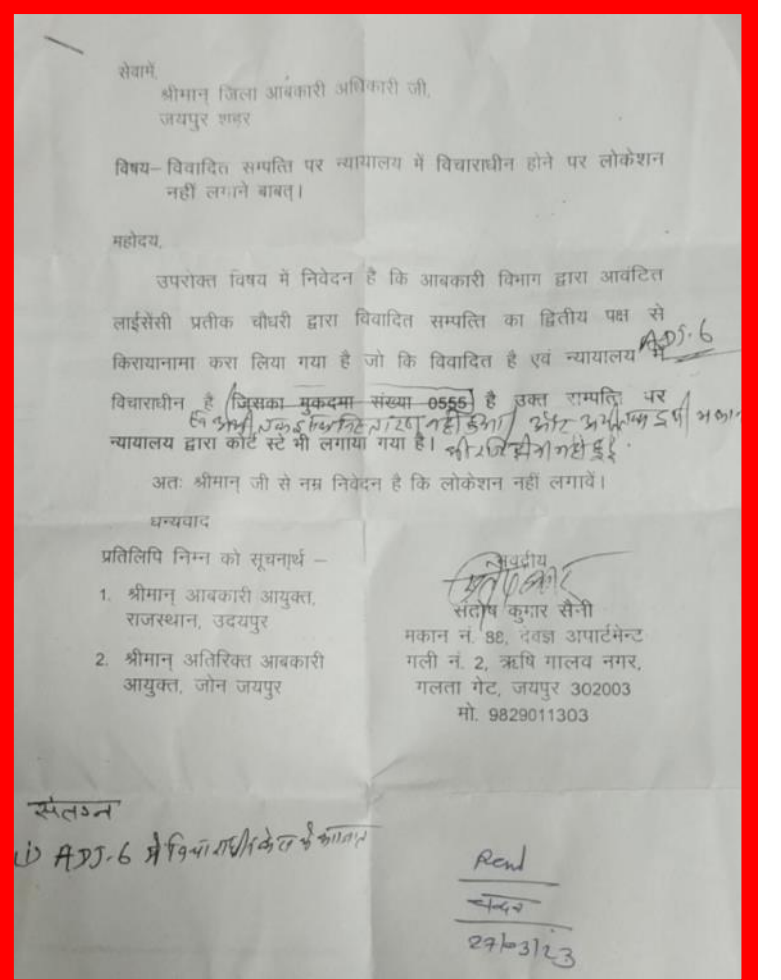 सेवामें,
श्रीमान् जिला आबकारी अधिकारी जी,
जयपुर शहर
विषय– विवादित सम्पत्ति पर न्यायालय में विचाराधीन होने पर लोकेशन
नहीं लगाने बाबत्।
महोदय,
उपरोक्त विषय में निवेदन है कि आबकारी विभाग द्वारा आवंटित
लाईसेंसी प्रतीक चौधरी द्वारा विवादित सम्पत्ति का द्वितीय पक्ष से
किरायानामा करा लिया गया है जो कि विवादित है एवं न्यायालय ADJ-6 में
विचाराधीन है (जिसका मुकदमा संख्या 0555) है उक्त सम्पत्ति पर
नहीं हुआ। और
न्यायालय द्वारा कोर्ट स्टे भी लगाया गया है।
नहीं हुई
अतः श्रीमान् जी से नम्र निवेदन है कि लोकेशन नहीं लगावें।
धन्यवाद
प्रतिलिपि निम्न को सूचनार्थ –
1. श्रीमान् आबकारी आयुक्त,
राजस्थान, उदयपुर
2. श्रीमान् अतिरिक्त आबकारी
आयुक्त, जोन जयपुर
भवदीय
संतोष कुमार सैनी
मकान नं. 88, देवज्ञ अपार्टमेन्ट
गली नं. 2, ऋषि गालव नगर,
गलता गेट, जयपुर 302003
मो. 9829011303
संलग्न
(i) ADJ-6 में विचाराधीन केस के कागजात
27/03/23